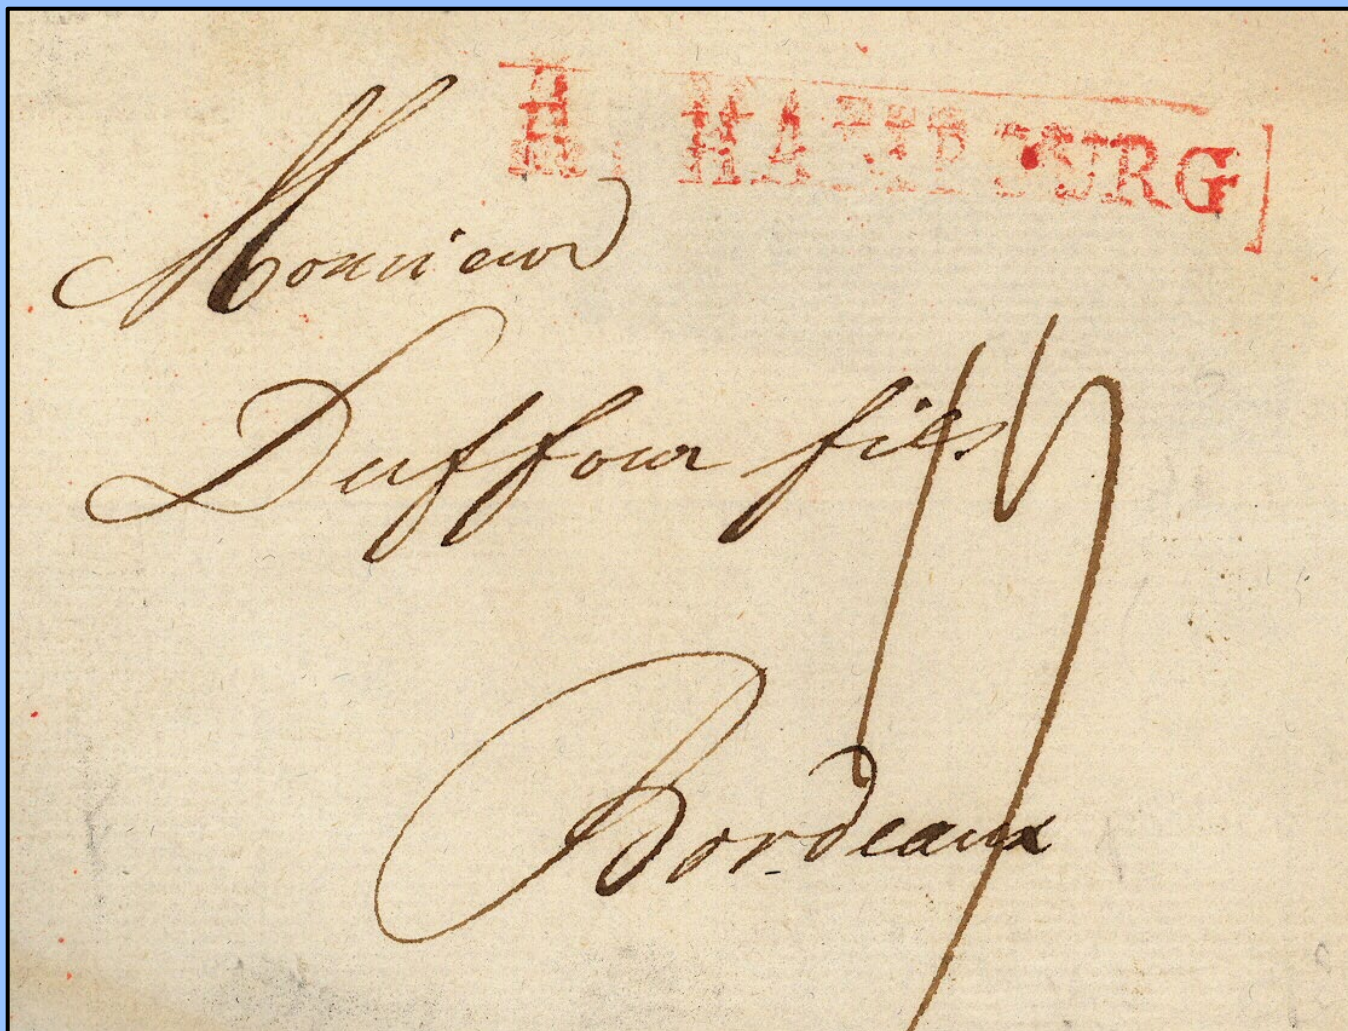 R. HAMBOURG
Monsieur
Duffour fils
17
Bordeaux